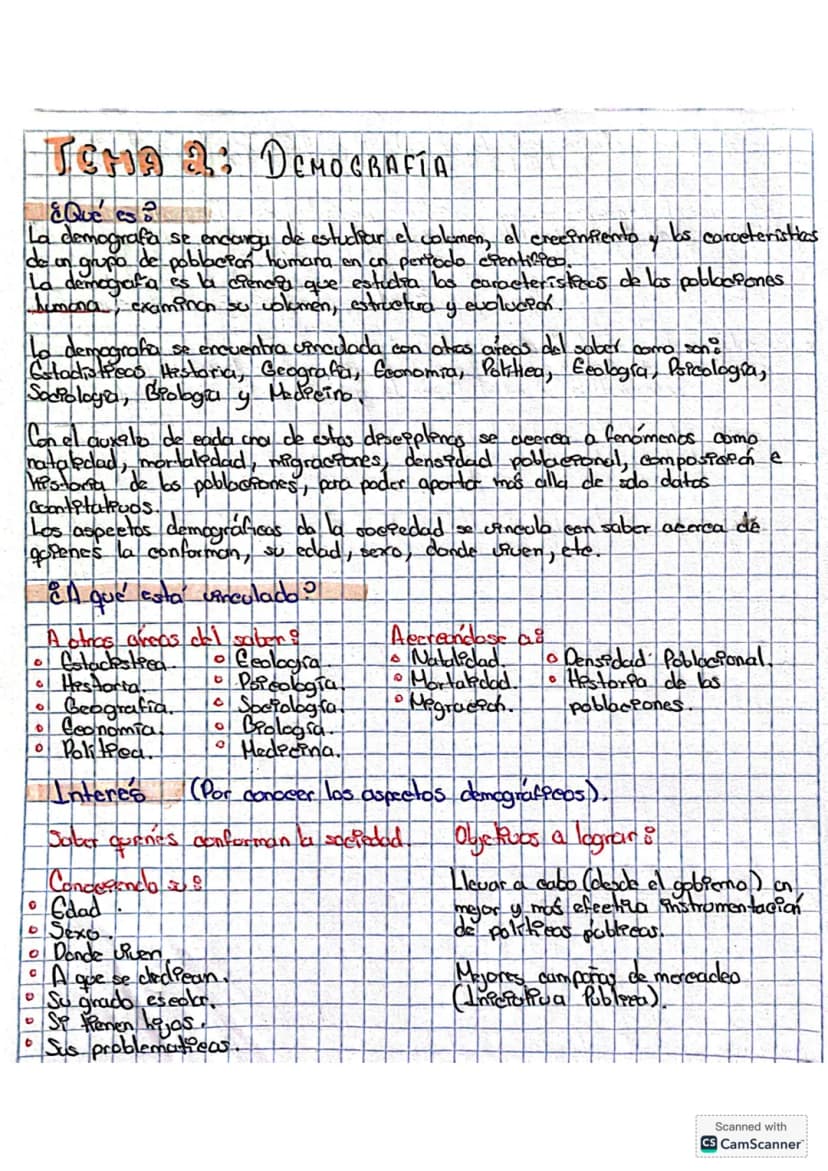 TEMA 2: DEMOGRAFÍA
¿Qué es?
La demografía se encarga de estudiar el volumen, el crecimiento y las características
de un grupo de población humana en un período científico.
La demografía es la ciencia que estudia las características de las poblaciones
humana, examinan su volumen, estructura y evolución.
La demografía se encuentra vinculada con otras áreas del saber como son:
Estadísticas Historia, Geografía, Economía, Política, Ecología, Psicología,
Sociología, Biología y Medicina.
Con el auxilio de cada una de estas disciplinas se acerca a fenómenos como
natalidad, mortalidad, migraciones, densidad poblacional, composición e
historia de las poblaciones, para poder aportar más allá de solo datos
cuantitativos.
Los aspectos demográficos de la sociedad se vincula con saber acerca de
quienes la conforman, su edad, sexo, donde viven, etc.
¿A qué está vinculado?
A otras áreas del saber: Acercándose a:
• Estadística. • Ecología. • Natalidad. • Densidad Poblacional.
• Historia. • Psicología. • Mortalidad. • Historia de las
• Geografía. • Sociología. • Migración. poblaciones.
• Economía. • Biología.
• Política. • Medicina.
Interés (Por conocer los aspectos demográficos).
Saber quienés conforman la sociedad. Objetivos a lograr:
Conociendo su: Llevar a cabo (desde el gobierno) un
• Edad. mejor y más efectiva instrumentación
• Sexo. de políticas públicas.
• Donde viven
• A que se dedican. Mejores campañas de mercadeo
• Su grado escolar. (Iniciativa Pública).
• Si tienen hijos.
• Sus problematicas.
Scanned with
CS CamScanner